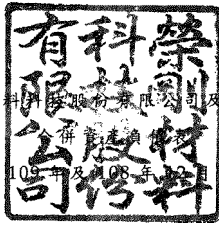 榮剛材料
科技股份
有限公司
料科技股份有限公司及
合併資產負債表
109年及108年12月